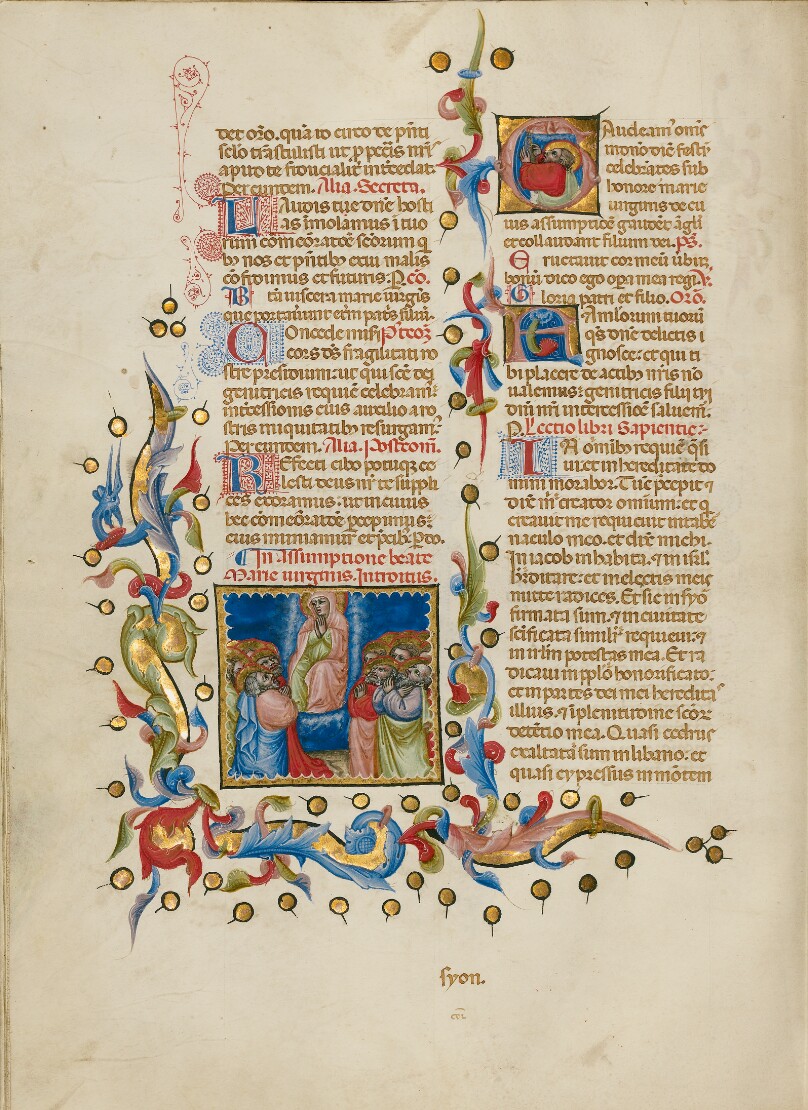 det oro. qua io circo de pnti
selo trastulisti ut p peccis nris
apud te fiducialit intcedat.
Per eundem. Alia. Secreta.
Laudis tue dne hosti
as imolamus i tuo
rum comeoratoe scorum q
by nos et pntiby exui malis
cofidimus et futuris. P. co.
Bta uiscera marie uirgis
que portauunt etni patris filiu.
Concede misi P teoz
cors ds fragilitati no
stre presidium: ut qui sce dei
genitricis requie celebram:
intcessionis eius auxilio a no
stris iniquitatiby resurgam.
Per eundem. Alia. Postcom.
Refecti cibo potuq ce
lesti deus nr te suppli
ces exoramus: ut in cuius
hec comeoratoe pcepimus:
eius muniamur et pcib. P do.
In assumptione beate
Marie uirginis. Introitus.
Gaudeam onis
in dno diē festū
celebrates sub
honore marie
uirginis de cu
ius assumptioe gaudet agli
et collaudant filium dei. Ps.
Eructauit cor meū ūbū
bonū dico ego opa mea regi. V.
Gloria patri et filio. Oro.
Famlorum tuorū
qs dne delictis i
gnosce: et qui ti
bi placere de actiby nris no
ualemus: genitricis filij tui
dni nri intercessioē saluem.
P. Lectio libri Sapientie:-
In omiby requiē qsi
ui: et in hereditate do
mini morabor. Tuc pcepit 7
dix m creator omnium: et q
creauit me requieuit in tabē
naculo meo. et dix michi.
In iacob inhabita. 7 in isrl
hereditare: et in electis meis
mitte radices. Et sic in syō
firmata sum. 7 in ciuitate
scificata similr requieui. 7
in irlm potestas mea. Et ra
dicaui in pplo honorificato:
et in partes dei mei heredita
illius. 7 i plenitudine scōr
detētio mea. Quasi cedrus
exaltata sum in libano: et
quasi cypressus in mōtem
syon.